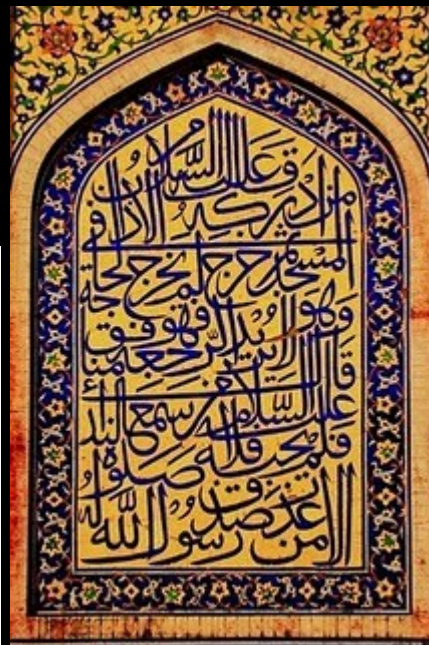 قال عليه السلام
من ادركه الاذان في
المسجد ثم خرج لم يخرج لحاجة
وهو لا يريد الرجعة فهو منافق
قال عليه السلام من سمع النداء
فلم يجب فلا صلوة له
الا من عذر صدق رسول الله